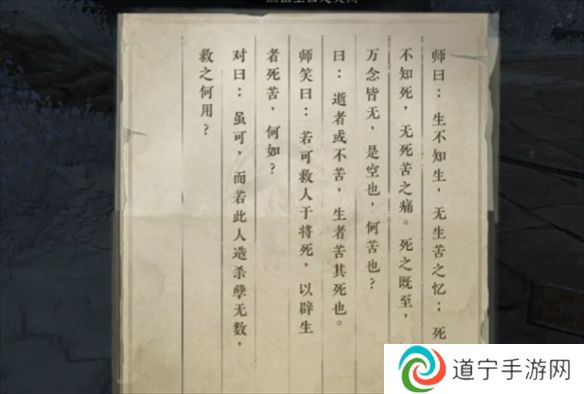 师曰：生不知生，无生苦之忆；死
不知死，无死苦之痛。死之既至，
万念皆无，是空也，何苦也？
曰：逝者或不苦，生者苦其死也。
师笑曰：若可救人于将死，以辟生
者死苦，何如？
对曰：虽可，而若此人造杀孽无数，
救之何用？
道宁手游网